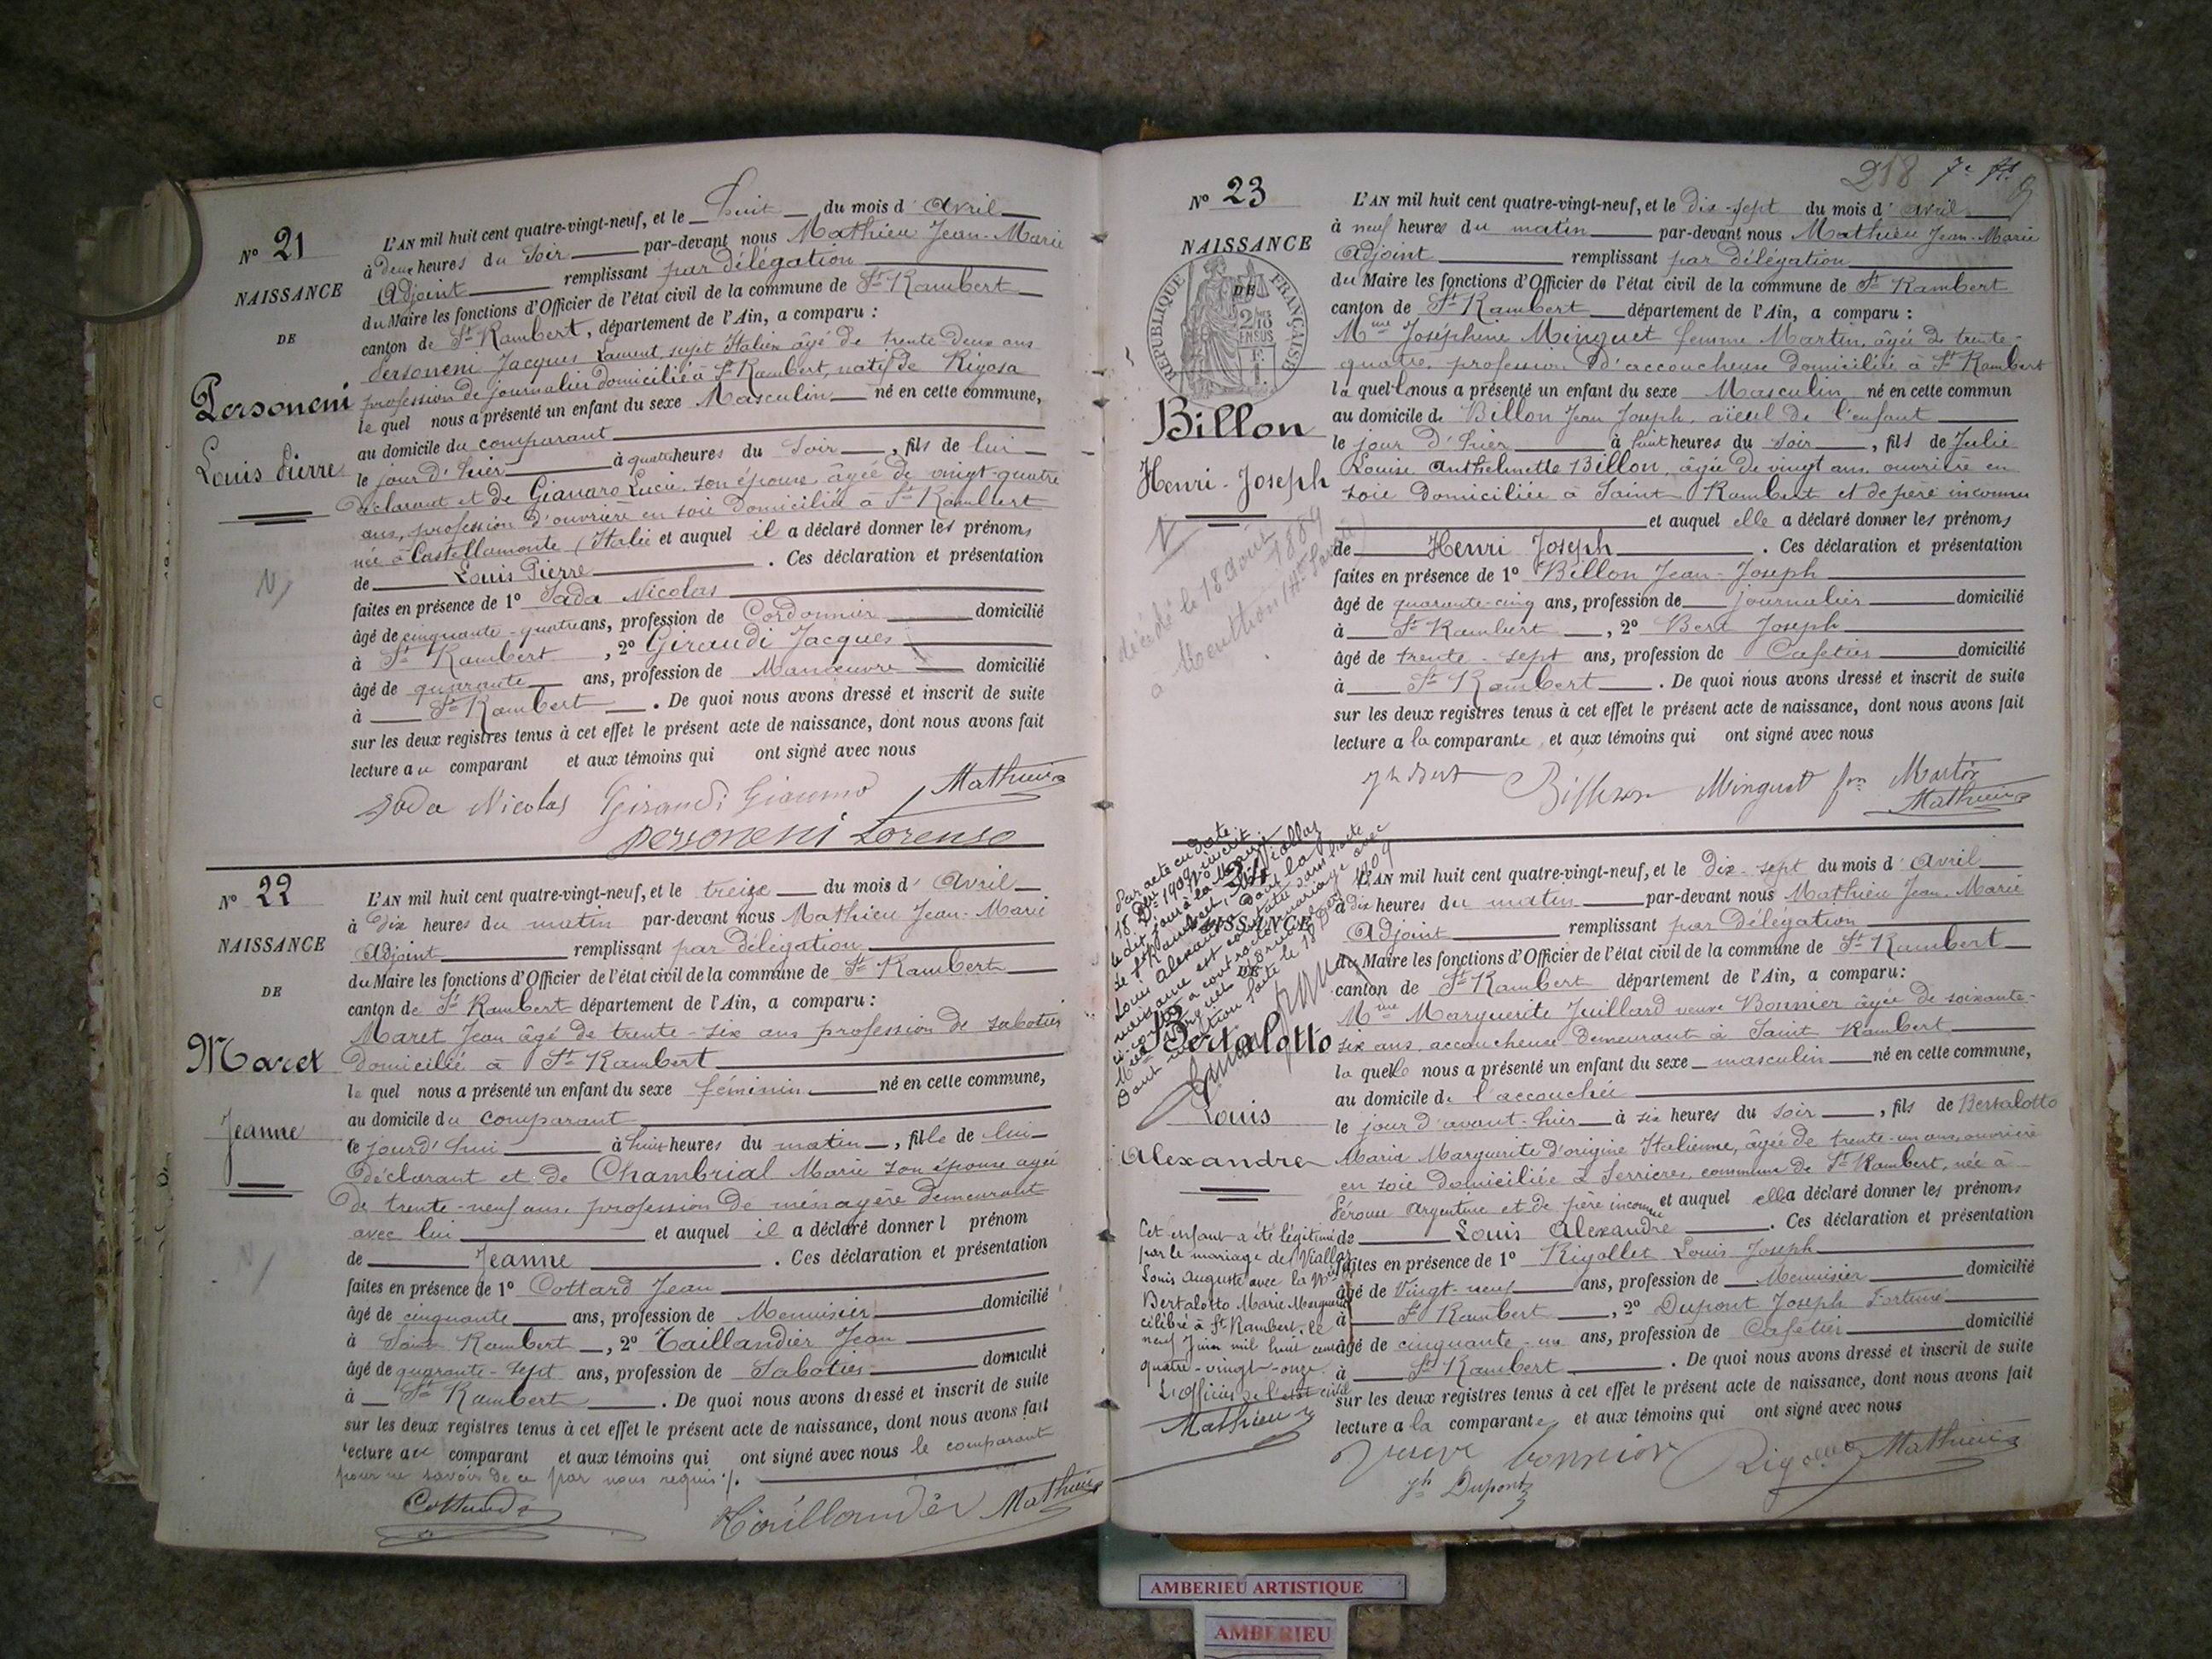 N° 21
NAISSANCE
DE
Personeni
Louis Pierre
L'AN mil huit cent quatre-vingt-neuf, et le huit du mois d'Avril
à deux heures du Soir par-devant nous Mathieu Jean-Marie
Adjoint remplissant par délégation
du Maire les fonctions d'Officier de l'état civil de la commune de St Rambert
canton de St Rambert, département de l'Ain, a comparu :
Personeni Jacques Laurent, sujet Italien âgé de trente deux ans
profession de journalier domicilié à St Rambert, natif de Rigosa
le quel nous a présenté un enfant du sexe Masculin né en cette commune,
au domicile du comparant
le jour d'hier à quatre heures du Soir, fils de lui
déclarant et de Gianaro Lucie, son épouse âgée de vingt-quatre
ans, profession d'ouvrière en soie domiciliée à St Rambert
née à Castellamonte (Italie et auquel il a déclaré donner les prénoms
de Louis Pierre. Ces déclaration et présentation
faites en présence de 1° Sada Nicolas
âgé de cinquante-quatre ans, profession de Cordonnier domicilié
à St Rambert, 2° Giraudi Jacques
âgé de quarante ans, profession de Manœuvre domicilié
à St Rambert. De quoi nous avons dressé et inscrit de suite
sur les deux registres tenus à cet effet le présent acte de naissance, dont nous avons fait
lecture au comparant et aux témoins qui ont signé avec nous
Sada Nicolas Giraudi Giacumo Mathieu
Personeni Lorenso
N° 22
NAISSANCE
DE
Maret
Jeanne
L'AN mil huit cent quatre-vingt-neuf, et le treize du mois d'Avril
à dix heures du matin par-devant nous Mathieu Jean-Marie
Adjoint remplissant par délégation
du Maire les fonctions d'Officier de l'état civil de la commune de St Rambert
canton de St Rambert département de l'Ain, a comparu :
Maret Jean âgé de trente-six ans profession de sabotier
domicilié à St Rambert
le quel nous a présenté un enfant du sexe féminin né en cette commune,
au domicile du comparant
le jourd'hui à huit heures du matin, fille de lui
déclarant et de Chambrial Marie son épouse agée
de trente-neuf ans, profession de ménagère demeurant
avec lui et auquel il a déclaré donner l prénom
de Jeanne. Ces déclaration et présentation
faites en présence de 1° Cottard Jean
âgé de cinquante ans, profession de Menuisier domicilié
à Saint Rambert, 2° Taillandier Jean
âgé de quarante-sept ans, profession de Sabotier domicilié
à St Rambert. De quoi nous avons dressé et inscrit de suite
sur les deux registres tenus à cet effet le présent acte de naissance, dont nous avons fait
lecture au comparant et aux témoins qui ont signé avec nous le comparant
pour ne savoir de ce par nous requis ./.
Cottard Taillandier Mathieu
218 7e
N° 23
NAISSANCE
DE
RÉPUBLIQUE FRANÇAISE
Billon
Henri-Joseph
décédé le 18 août 1889
à Menthon (Hte Savoie)
L'AN mil huit cent quatre-vingt-neuf, et le dix-sept du mois d'avril
à neuf heures du matin par-devant nous Mathieu Jean-Marie
Adjoint remplissant par délégation
du Maire les fonctions d'Officier de l'état civil de la commune de St Rambert
canton de St Rambert département de l'Ain, a comparu :
Mme Joséphine Minguet femme Martin, âgée de trente-
quatre, profession d'accoucheuse domiciliée à St Rambert
la quelle nous a présenté un enfant du sexe Masculin né en cette commun
au domicile de Billon Jean Joseph, aïeul de l'enfant
le jour d'hier à huit heures du soir, fils de Julie
Louise Anthelmette Billon, âgée de vingt ans ouvrière en
soie domiciliée à Saint Rambert et de père inconnu
et auquel elle a déclaré donner les prénoms
de Henri Joseph. Ces déclaration et présentation
faites en présence de 1° Billon Jean-Joseph
âgé de quarante-cinq ans, profession de journalier domicilié
à St Rambert, 2° Bert Joseph
âgé de trente-sept ans, profession de Cafetier domicilié
à St Rambert. De quoi nous avons dressé et inscrit de suite
sur les deux registres tenus à cet effet le présent acte de naissance, dont nous avons fait
lecture a la comparante, et aux témoins qui ont signé avec nous
Jh Bert Billon Minguet fm Martin
Mathieu
Par acte en date
NAISSANCE
DE
Bertalotto
Louis
Alexandre
Cet enfant a été légitimé
par le mariage de Viallar
Louis Auguste avec la
Bertalotto Marie Marguerite
célébré à St Rambert, le
neuf Juin mil huit cent
quatre-vingt-onze.
L'officier de l'état civil
Mathieu
L'AN mil huit cent quatre-vingt-neuf, et le dix-sept du mois d'Avril
à dix heures du matin par-devant nous Mathieu Jean-Marie
Adjoint remplissant par délégation
du Maire les fonctions d'Officier de l'état civil de la commune de St Rambert
canton de St Rambert département de l'Ain, a comparu:
Mme Marguerite Juillard veuve Bonnier âgée de soixante-
six ans, accoucheuse demeurant à Saint Rambert
la quelle nous a présenté un enfant du sexe masculin né en cette commune,
au domicile de l'accouchée
le jour d'avant-hier à six heures du soir, fils de Bertalotto
Maria Marguerite d'origine Italienne, âgée de trente-un ans, ouvrière
en soie domiciliée à Serrières, commune de St Rambert, née à
Pérouse Argentine et de père inconnu et auquel elle a déclaré donner les prénoms
de Louis Alexandre. Ces déclaration et présentation
faites en présence de 1° Rigollet Louis Joseph
âgé de Vingt-neuf ans, profession de Menuisier domicilié
à St Rambert, 2° Dupont Joseph Fortuné
âgé de cinquante-un ans, profession de Cafetier domicilié
à St Rambert. De quoi nous avons dressé et inscrit de suite
sur les deux registres tenus à cet effet le présent acte de naissance, dont nous avons fait
lecture a la comparante, et aux témoins qui ont signé avec nous
veuve bonnier Rigollet Mathieu
Jh Dupont
AMBERIEU ARTISTIQUE
AMBERIEU